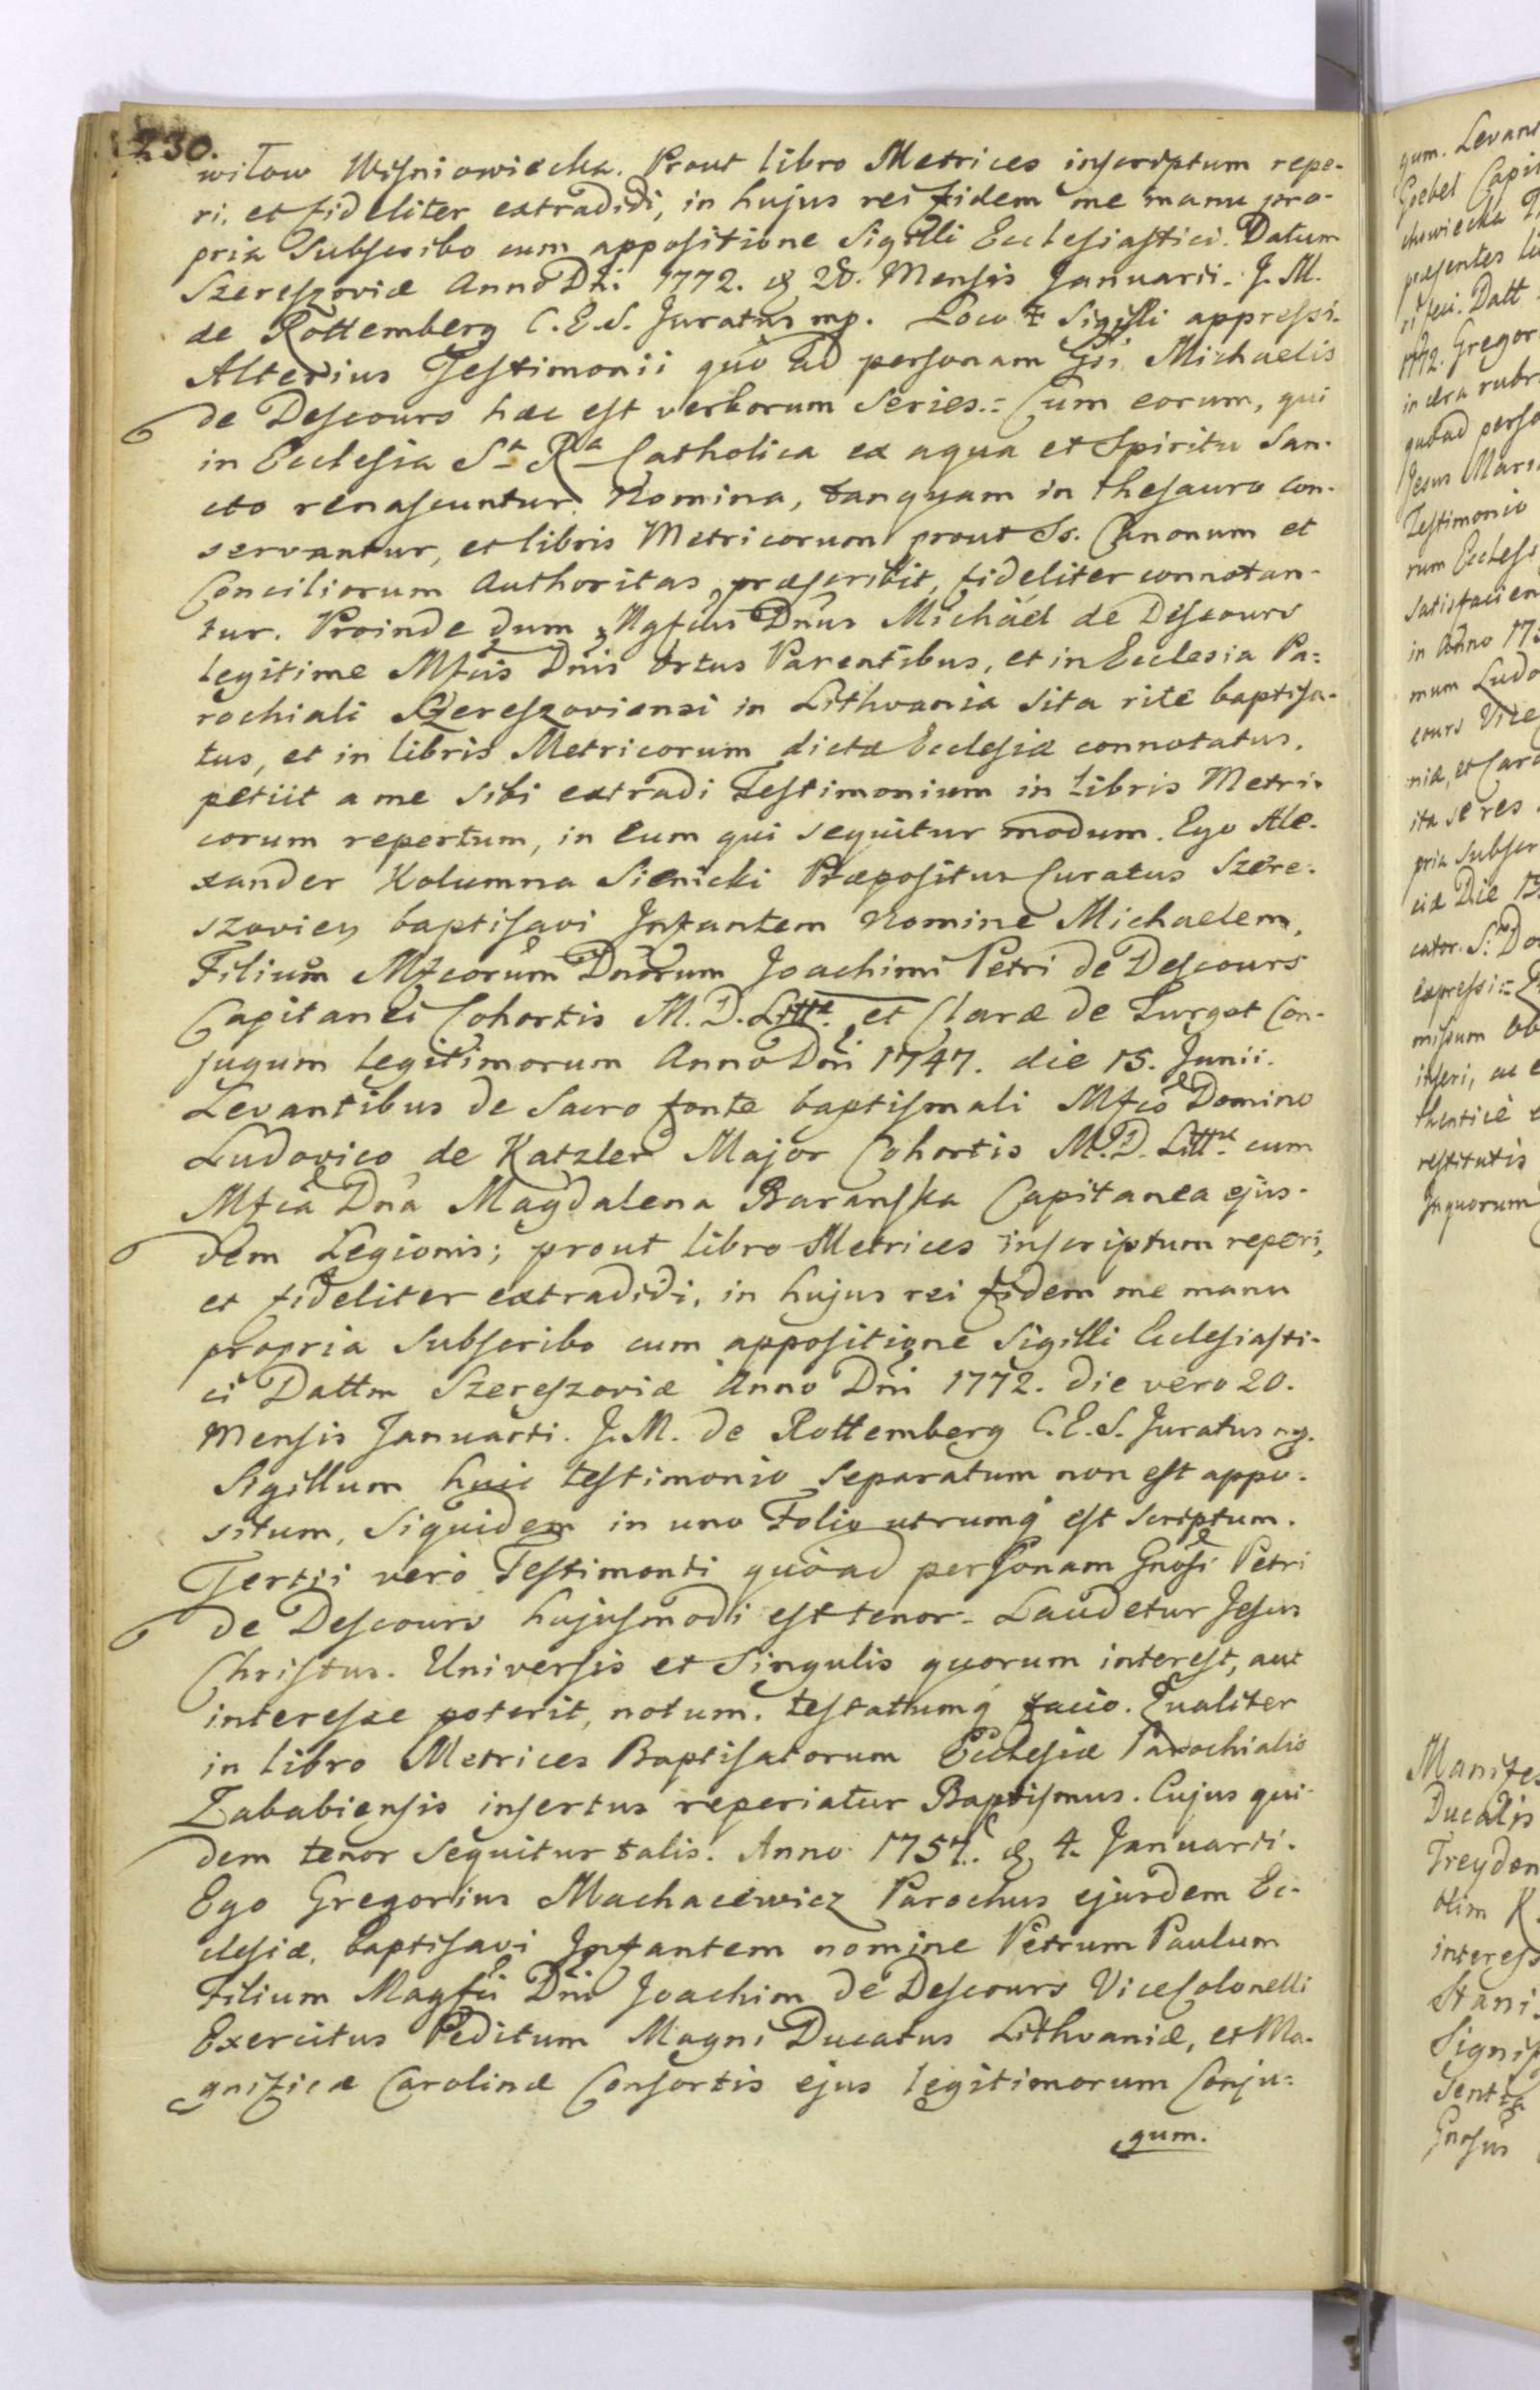 230.
witow Wisniowiecka. Prout libro Metrices inscriptum repe-
ri, et fideliter extradidi, in hujus rei fidem me manu pro-
pria Subscribo cum appositione Sigilli Ecclesiastici. Datum
Szereszoviæ Anno Dni 1772. d. 20. Mensis Januarii. J. M.
de Rottemberg C. E. S. Juratus mp. Loco ‡ Sigilli appressi.
Alterius Testimonii quò ad personam Gsi Michaelis
de Descours hæc est verborum Series.= Cum eorum, qui
in Ecclesia Sta Rna Catholica ex aqua et Spiritu San-
cto renascuntur Nomina, tanquam in thesauro con-
servantur, et libris Metricorum prout Ss. Canonum et
Conciliorum Authoritas præscribit, fideliter connotan-
tur. Proinde dum Mgfcus Dnus Michaël de Descours
legitime Mfcis Dnis Ortus Parentibus, et in Ecclesia Pa=
rochiali Szereszoviensi in Lithvania sita rite baptisa-
tus, et in libris Metricorum dictæ Ecclesiæ connotatus,
petiit a me sibi extradi Testimonium in libris Metri-
corum repertum, in eum qui sequitur modum. Ego Ale-
xander Kolumna Sienicki Præpositus Curatus Szere-
szovien baptisavi Infantem Nomine Michaelem,
Filium Mfcorum Dnorum Joachimi Petri de Descours
Capitanei Cohortis M. D. Littæ. et Claræ de Turgot Con-
jugum legitimorum Anno Dni 1747. die 15. Junii.
Levantibus de Sacro fonte baptismali Mfco Domino
Ludovico de Katzler Major Cohortis M. D. Littæ. cum
Mfca Dna Magdalena Baranska Capitanea ejus-
dem Legionis; prout libro Metrices inscriptum reperi,
et fideliter extradidi, in hujus rei fidem me manu
propria Subscribo cum appositione Sigilli Ecclesiasti-
ci Dattm Szereszoviæ Anno Dni 1772. die vero 20.
Mensis Januarii. J. M. de Rottemberg C. E. S. Juratus mp.
Sigillum huic testimonio separatum non est appo-
situm, Siquidem in uno Folio utrumq́ est scriptum.
Tertii verò Testimonii quòad personam Gnosi Petri
de Descours hujusmodi est tenor- Laudetur Jesus
Christus. Universis et Singulis quorum interest, aut
interesse poterit, notum. testatumq́ facio. Qualiter
in libro Metrices Baptisatorum Ecclesiæ Parochialis
Zababiensis insertus reperiatur Baptismus. Cujus qui-
dem tenor sequitur talis. Anno 1757. d. 4. Januarii.
Ego Gregorius Machacewicz Parochus ejusdem Ec-
clesiæ, baptisavi Infantem nomine Petrum Paulum
Filium Magfci Dni Joachim de Descours ViceColonelli
Exercitus Peditum Magni Ducatus Lithvaniæ, et Ma-
gnificæ Carolinæ Consortis ejus legitimorum Conju=
gum.
gum. Levan
Goebel Capi
chowiecka
præsentes li
Datt
1772. Gregor
in cera rubr
quòad perso
Jesus Mari
Testimonio
rum Ecclesi
Satisfacien
in Anno 17
mum Ludo
cours Vice
niæ, et Caro
ita se res
pria Subscr
ciæ Die 13
cator. S. Do
expressi:=
missum ob
inseri, ac e
thentice e
restitutis
In quorum
Manifes
Ducalis
Treyden
olim K.
interess
Stani.
Signif
Gnosus